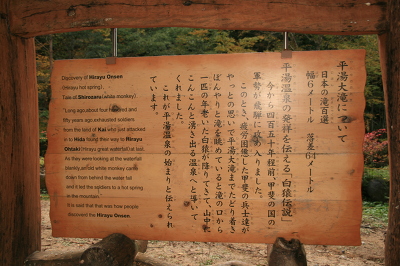 Discovery of Hirayu Onsen
(Hirayu hot spring).
Tale of Shirozaru (white monkey).
"Long ago about four hundred and
fifty years ago, exhausted soldiers
from the land of Kai who just attacked
in to Hida found their way to Hirayu
Ohtaki (Hirayu great waterfall) at last.
As they were looking at the waterfall
blankly, an old white monkey came
down from behind the water fall
and it led the soldiers to a hot spring
in the mountain."
It is said that this was how people
discovered the Hirayu Onsen.
平湯大滝について
日本の滝百選
幅6メートル 落差64メートル
平湯温泉の発祥を伝える「白猿伝説」
今から四百五十年程前、甲斐の国の
軍勢が飛騨に攻め入りました。
このとき、疲労困憊した甲斐の兵士達が
やっとの思いで平湯大滝までたどり着き
ぼんやりと滝を眺めていると滝の口から
一匹の年老いた白猿が降りてきて、山中に
こんこんと湧き出る温泉へと導いて
くれました。
これが平湯温泉の始まりと伝えられ
ています。